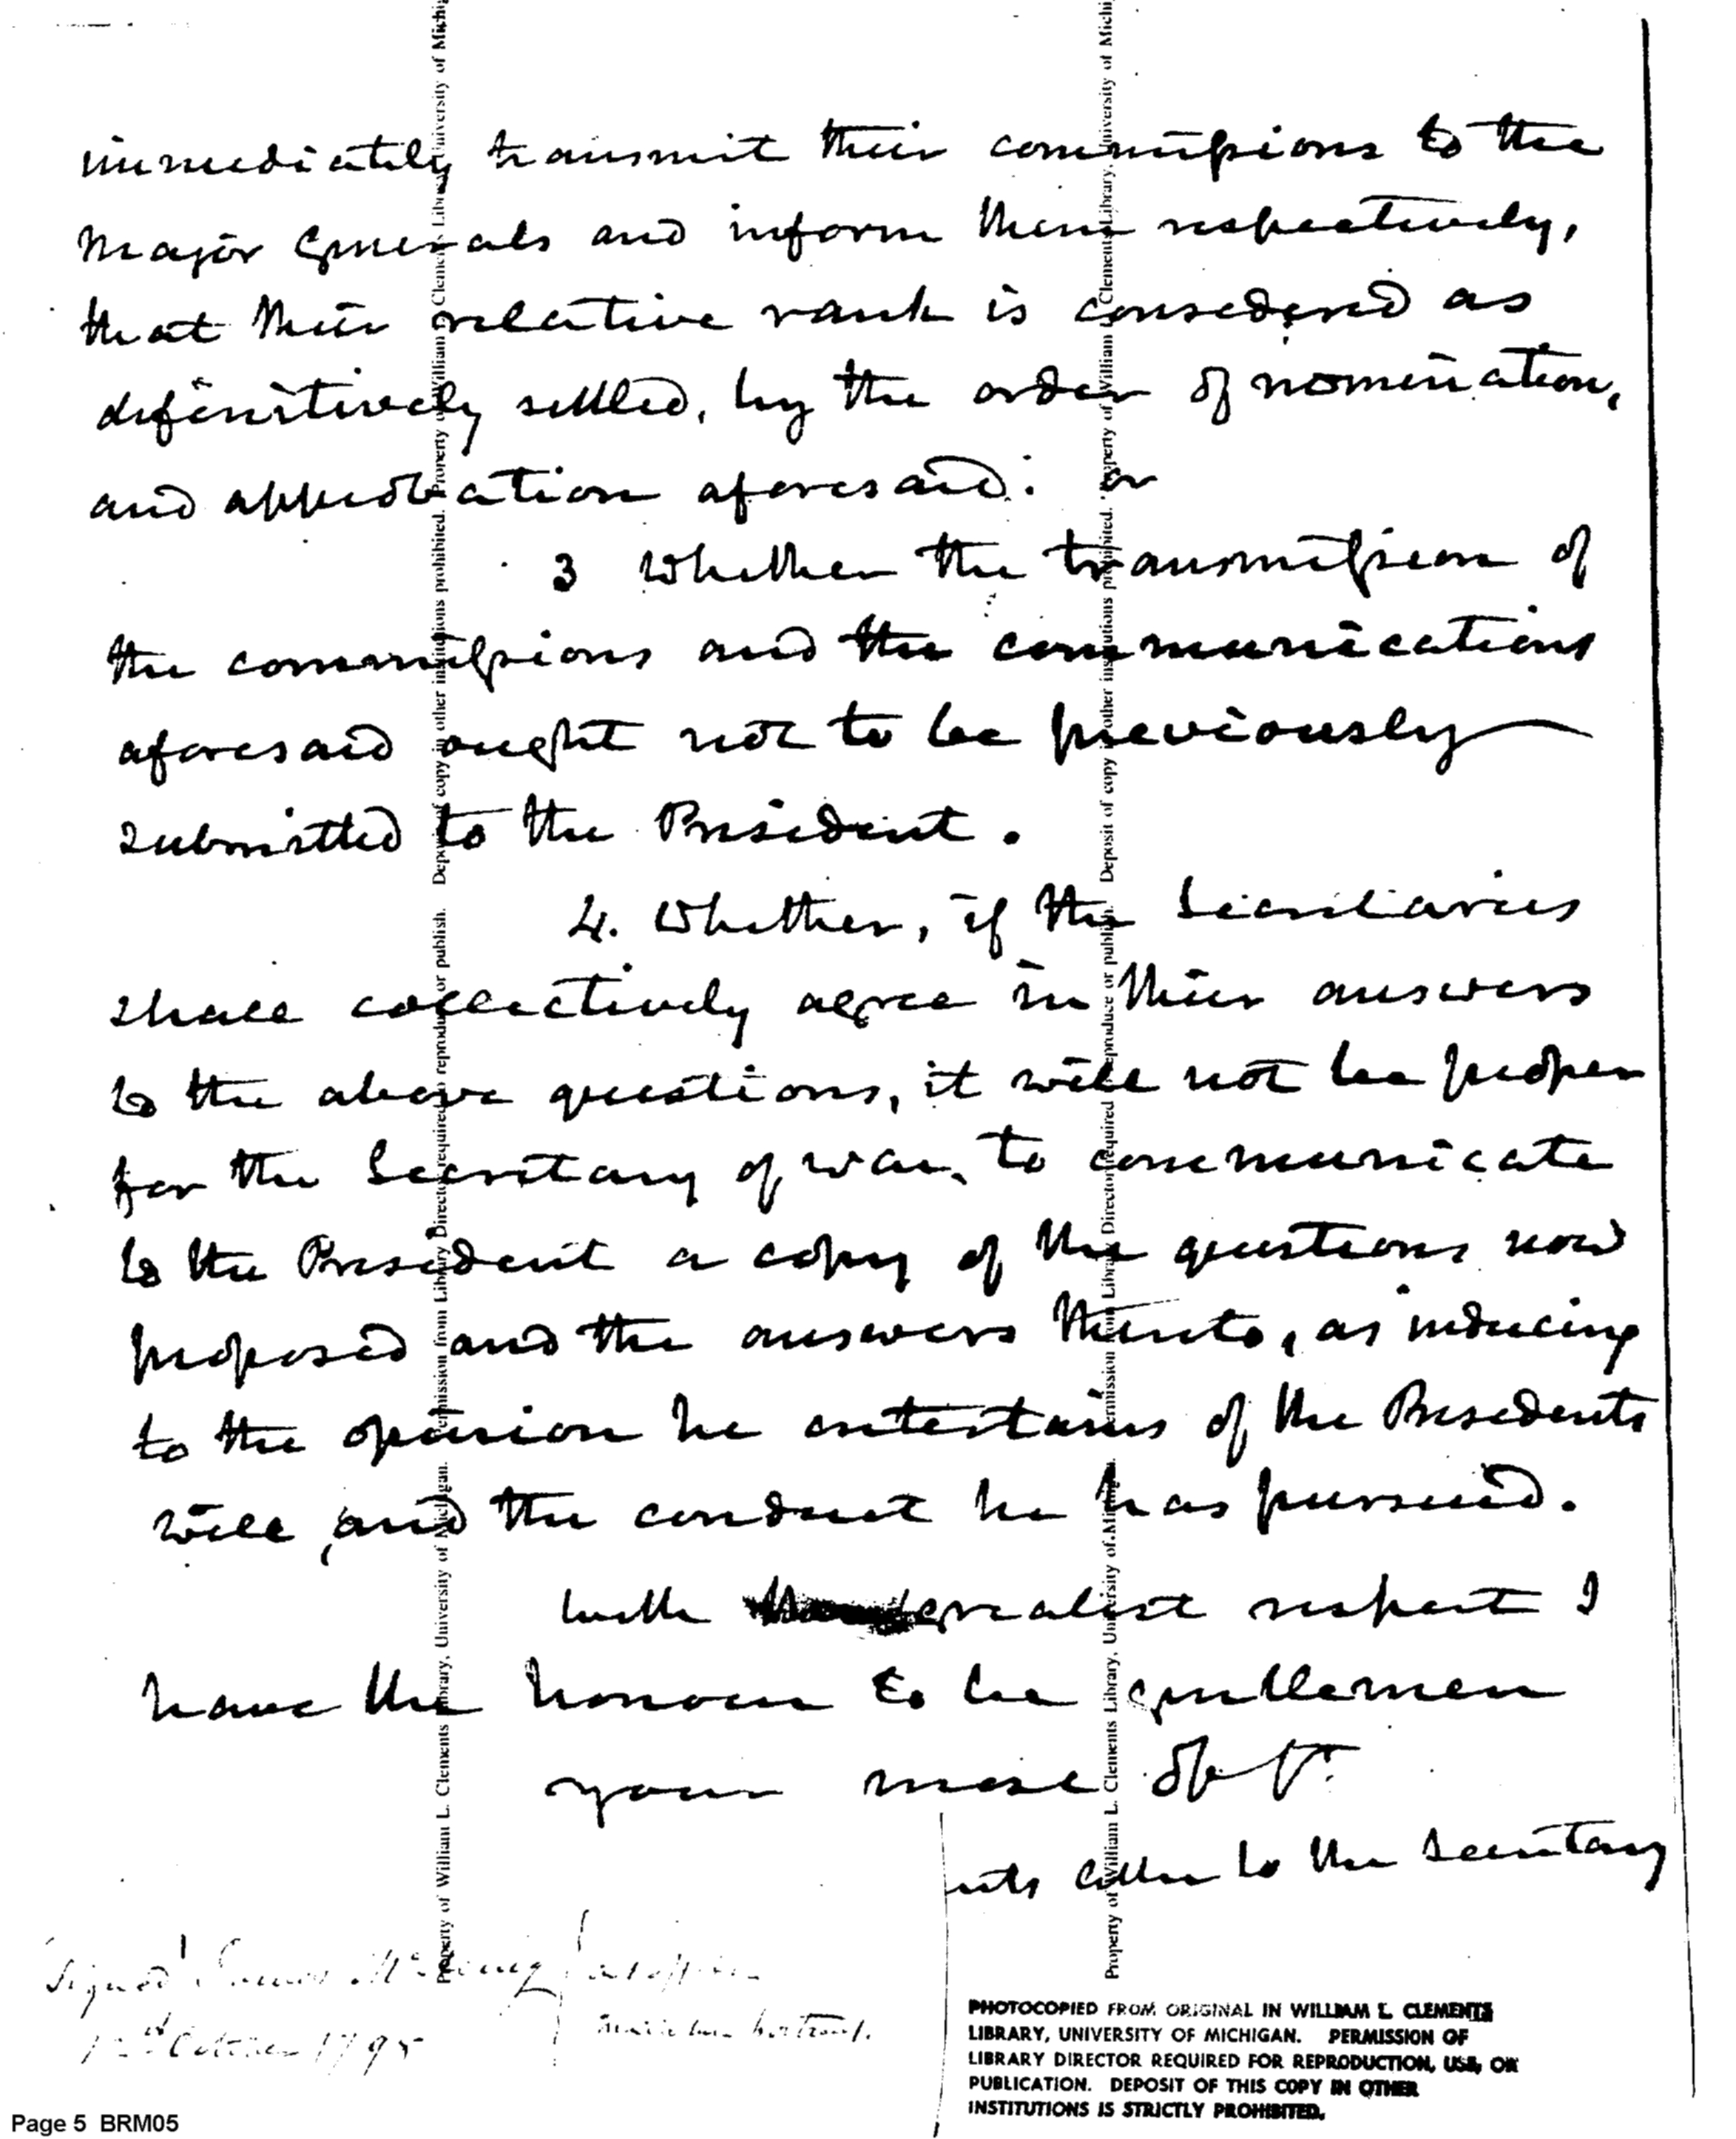 immediately transmit their commissions to the
Major Generals and inform them respectively,
that their relative rank is considered as
definitively settled, by the order of nomination,
and approbation aforesaid: or
3 Whether the transmission of
the commissions and the communications
aforesaid ought not to be previously
submitted to the President.
4. Whether, if the Secretaries
shall collectively agree in their answers
to the above questions, it will not be proper
for the Secretary of war, to communicate
to the President a copy of the questions now
proposed and the answers thereto, as inducing
to the opinion he entertains of the Presidents
will, and the conduct he has pursued.
With greatest respect I
have the honour to be gentlemen
your most obt.
to the Secretary
Signed James McHenry
October 179
PHOTOCOPIED FROM ORIGINAL IN WILLIAM L. CLEMENTS
LIBRARY, UNIVERSITY OF MICHIGAN. PERMISSION OF
LIBRARY DIRECTOR REQUIRED FOR REPRODUCTION, USE, OR
PUBLICATION. DEPOSIT OF THIS COPY IN OTHER
INSTITUTIONS IS STRICTLY PROHIBITED.
Page 5 BRM05
Property of William L. Clements Library, University of Michigan. Permission from Library Director required to reproduce or publish. Deposit of copy in other institutions prohibited. Property of William Clements Library, University of Michi
Property of William L. Clements Library, University of Michigan. Permission from Library Director required to reproduce or publish. Deposit of copy in other institutions prohibited. Property of William L. Clements Library, University of Michi